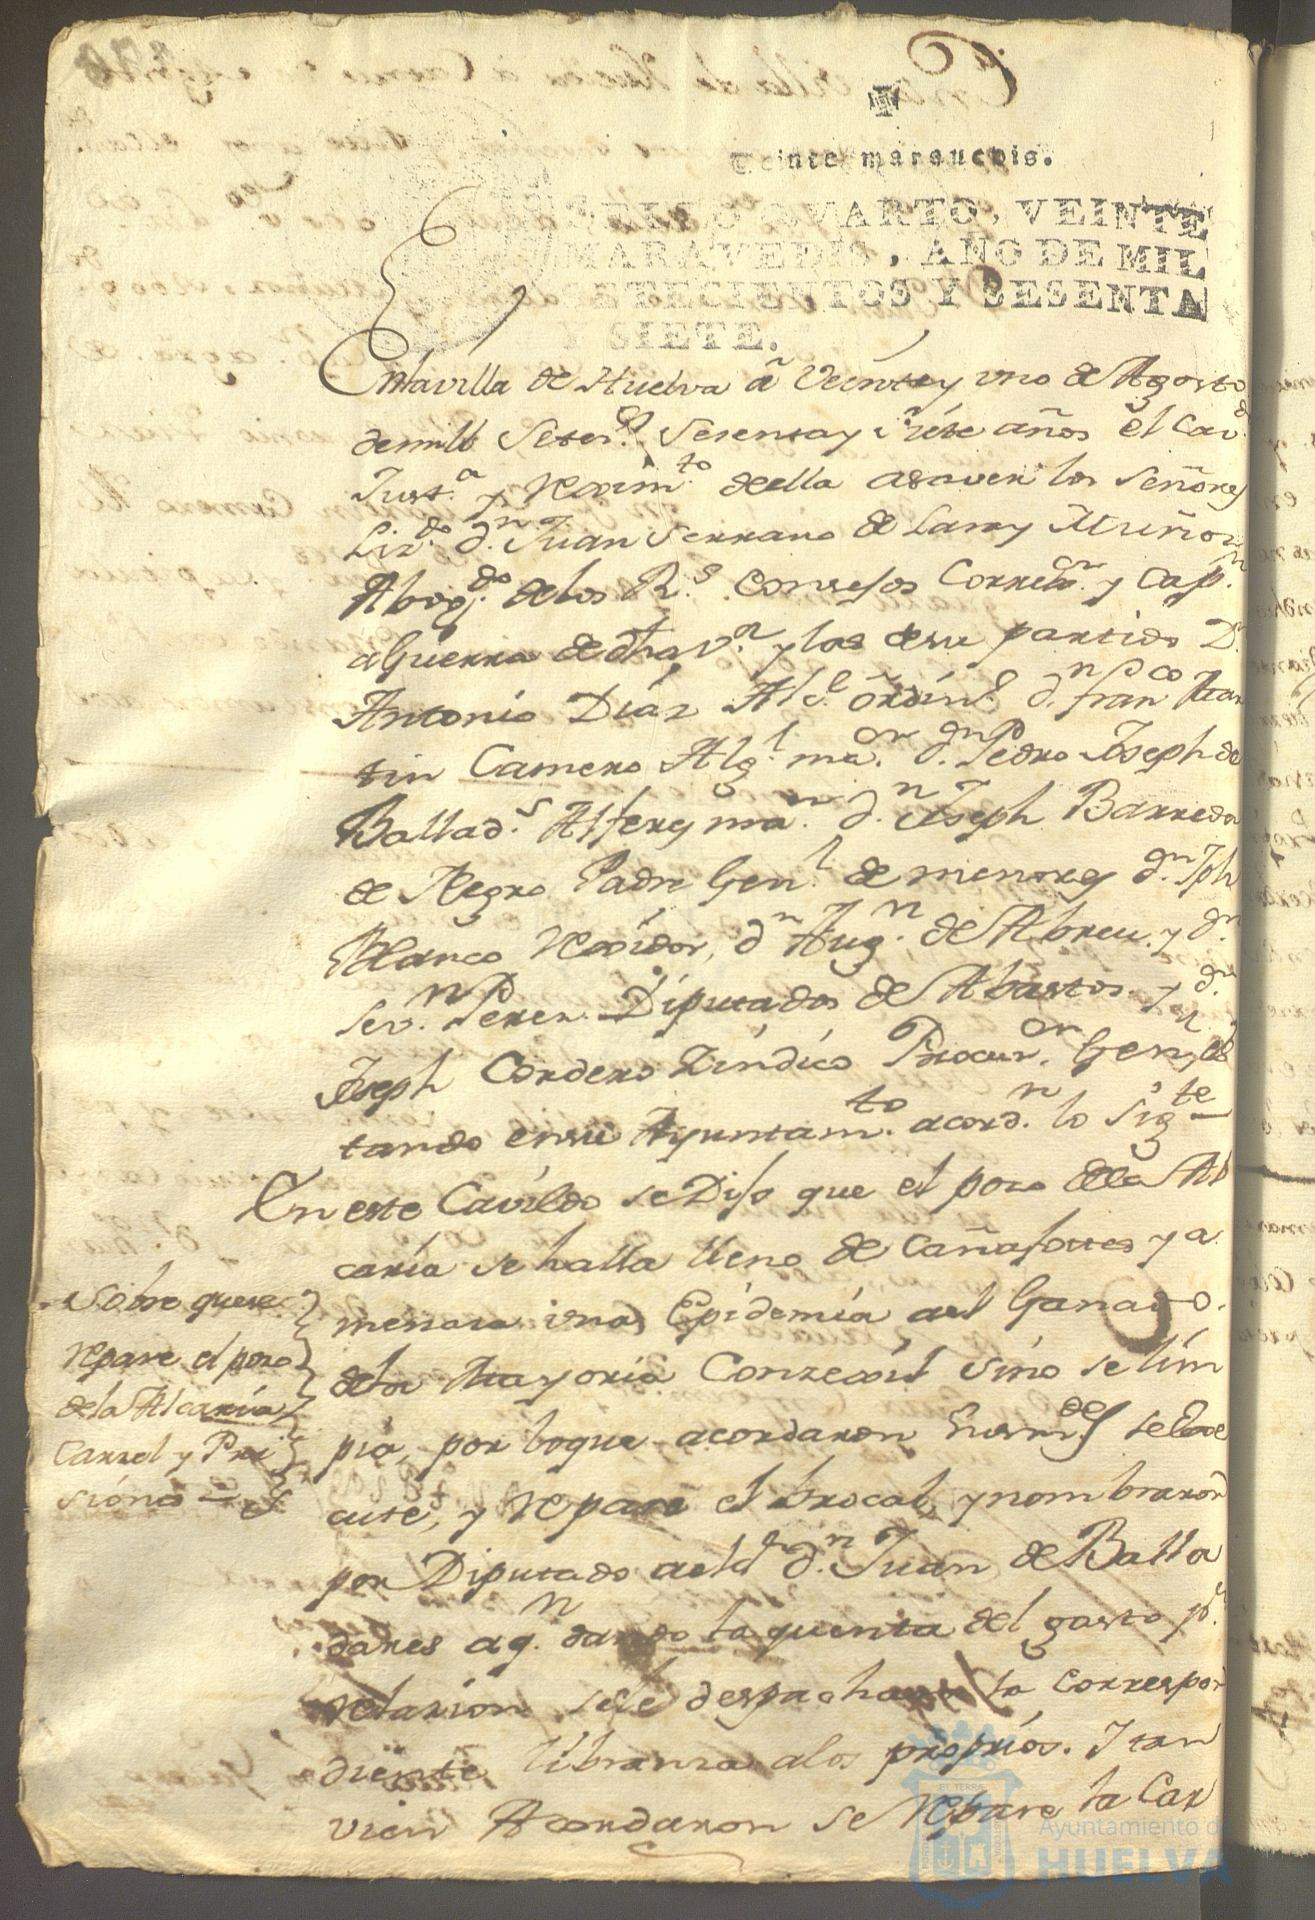 Veinte marauedis.
SELLO QVARTO, VEINTE
MARAVEDIS, AÑO DE MIL
SETECIENTOS Y SESENTA
Y SIETE.
Enlavilla de Huelva â Veintey uno de Agosto
demill Setez.s Sesentay siete años el Cav.do
Just.a y Rexim.to deella asaver los Señores
Liz.do d.n Juan Serrano de Lara y Muñoz
Abog.do delos R.s Consejos Correx.or y Cap.n
aGuerra de dha v.a y las desu partido D.n
Antonio Díaz Alc.e ordin.o d.n fran.co Mar
tin Camero Alg.l ma.or d.n Pedro Joseph de
Ballad.s Alferez ma.or d.n Joseph Barreda
de Negro Padre Gen.l de menores d.n Jph
Blanco Rexidor, d.n Aug.n de Abreu y d.n
Sev.n Perez Diputados de Abastos y d.n
Joseph Cordero Síndíco Procur.or Gen.l es
tando ensu Ayuntam.to acord.n lo sig.te
En este Cavildo se Dijo que el pozo dela Al
caría se halla lleno de Cañafotes y a
menaza una Epidemía ael Ganado
dela Mayoria Conzexil sino se lím
pia, por loque acordaron sus m.des se Exe
cute, y Repare el brocal, y nombraron
por Diputado ael d.n Juan de Balla
dares aq.n dando la quenta del gasto p.r
relazion sele despachara la Correspon
diente líbranza alos propríos. Y tan
vien Acordaron se Repare la Car
Sobre quese
Repare el pozo
dela Alcaría
Carzel y Pri
siónes
Ayuntamiento de
HUELVA